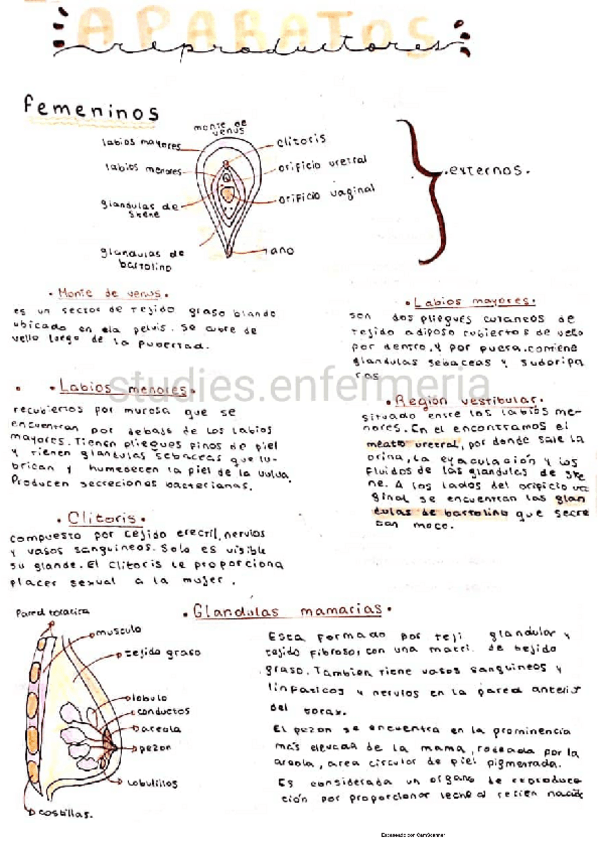 APARATOS
reproductores
femeninos
monte de
venus
labios mayores
clitoris
labios menores
orificio uretral
glandulas de
skene
orificio vaginal
glandulas de
bartolino
ano
externos.
• Monte de venus •
es un sector de tejido graso blando
ubicado en ela pelvis. Se cubre de
vello luego de la pubertad.
• Labios mayores •
son dos pliegues cutaneos de
tejido adiposo cubiertos de vello
por dentro, y por fuera. contiene
glandulas sebaceas y sudoripa
ras
• Labios menores •
recubiertos por mucosa que se
encuentran por debajo de los labios
mayores. Tienen pliegues finos de piel
y tienen glandulas sebaceas que lu-
brican y humedecen la piel de la vulva.
Producen secreciones bacterianas.
studies.enfermeria
• Región vestibular •
situado entre los labios me-
nores. En el encontramos el
meato uretral, por donde sale la
orina, la eyaculación y los
fluidos de las glandulas de ske
ne. A los lados del orificio va
ginal se encuentran las glan
dulas de bartolino que secre
tan moco.
• Clitoris •
compuesto por tejido erectil, nervios
y vasos sanguineos. Solo es visible
su glande. El clitoris le proporciona
placer sexual a la mujer.
• Glandulas mamarias •
Pared toracica
musculo
tejido graso
lobulo
conductos
areola
pezon
Lobulillos
costillas.
Esta formado por teji glandular y
tejido fibroso, con una matri de tejido
graso. Tambien tiene vasos sanguineos y
linfaticos y nervios en la pared anterior
del torax.
El pezon se encuentra en la prominencia
más elevada de la mama, rodeada por la
areola, area circular de piel pigmentada.
Es considerada un organo de reproduc
ción por proporcionar leche al recien nacido
Escaneado con CamScanner